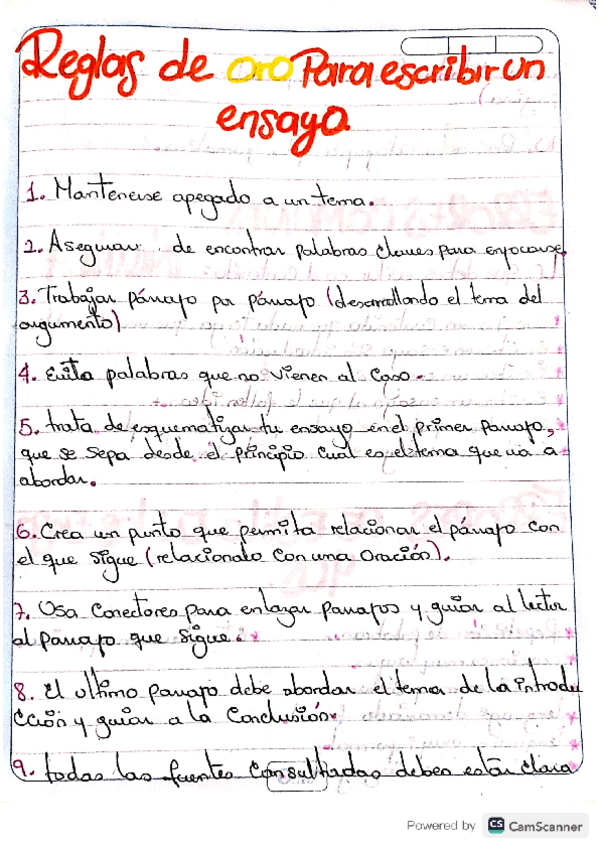 Reglas de oro Para escribir un
ensayo.
1. Mantenerse apegado a un tema.
2. Asegurar de encontrar palabras claves para enfocarse.
3. Trabajar párrafo por párrafo (desarrollando el tema del
argumento)
4. Evita palabras que no vienen al caso.
5. trata de esquematizar tu ensayo en el primer parrafo,
que se sepa desde el principio cual es el tema que va a
abordar.
6. Crea un punto que permita relacionar el párrafo con
el que sigue (relacionalo con una oración).
7. Usa conectores para enlazar parrafos y guiar al lector
al parrafo que sigue.
8. El ultimo parrafo debe abordar el tema de la introdu
cción y guiar a la conclusión.
9. todas las fuentes consultadas deben estar clara
Powered by CS CamScanner